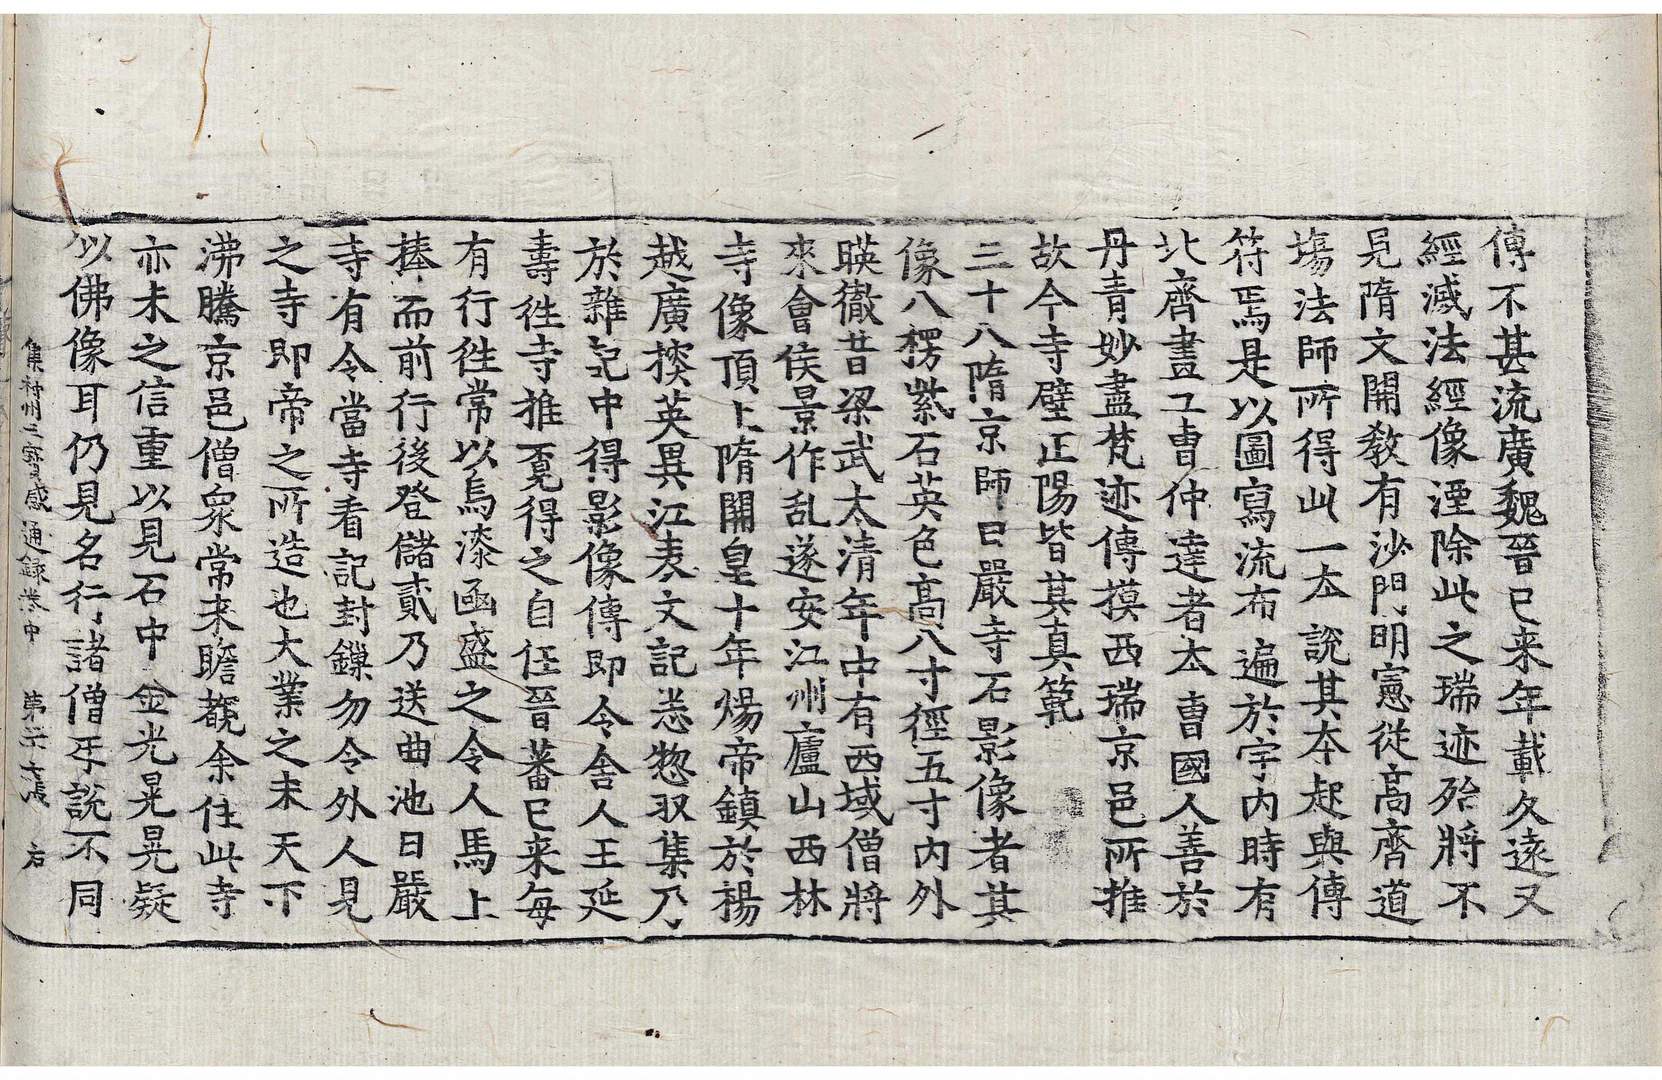 傳不甚流廣魏晉已来年載久遠又
經滅法經像湮除此之瑞迹殆將不
見隋文開教有沙門明憲從髙齊道
塲法師所得此一夲說其夲起與傳
符焉是以圖寫流布遍於宇内時有
北齊畫工曺仲達者夲曺國人善於
丹青妙盡梵迹傳摸西瑞京邑所推
故今寺壁正陽皆其真範
三十八隋京師日嚴寺石影像者其
像八楞紫石英色髙八寸徑五寸内外
暎徹昔梁武太清年中有西域僧將
來會侯景作乱遂安江州廬山西林
寺像頂上隋開皇十年煬帝鎮於楊
越廣搜英異江表文記悉惣収集乃
於雜記中得影像傳即令舎人王延
壽徃寺推覔得之自任晉蕃已来每
有行徃常以烏漆函盛之令人馬上
捧而前行後登儲貳乃送曲池日嚴
寺有令當寺看記封鏁勿令外人見
之寺即帝之所造也大業之末天下
沸騰京邑僧衆常来瞻覩余住此寺
亦未之信重以見石中金光晃晃疑
以佛像耳仍見名行諸僧互說不同
集神州三寶感通録卷中　第二十六張　右